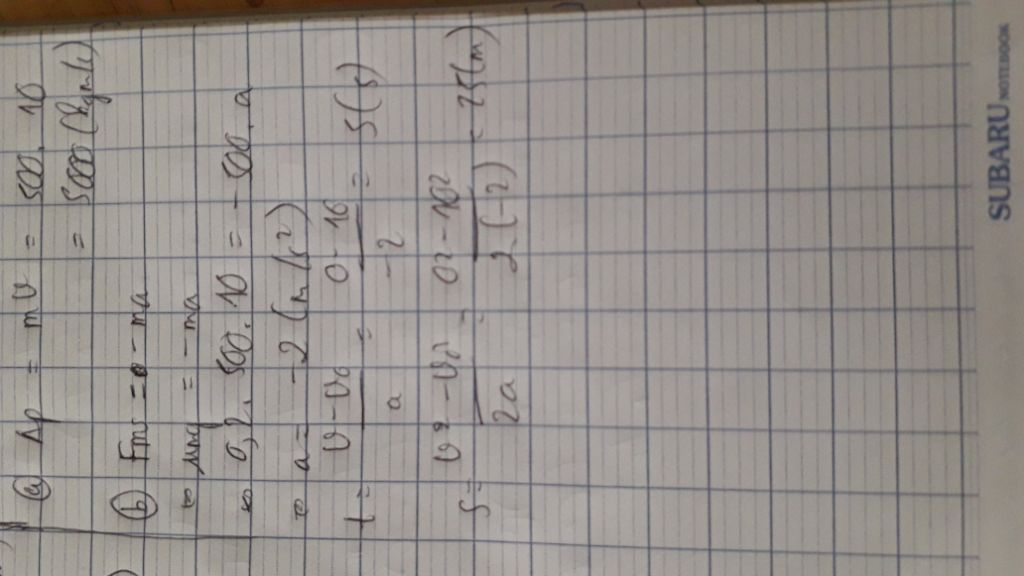 (a) Δp = mv = 500 . 10
= 5000 (kgm/s)
(b) Fms = - ma
⇔ μmg = -ma
⇔ 0,2 . 500 . 10 = - 500 . a
⇔ a = -2 (m/s²)
t = (v - v₀)/a = (0 - 10)/(-2) = 5 (s)
S = (v² - v₀²)/(2a) = (0² - 10²)/(2(-2)) = 25 (m)
SUBARU NOTEBOOK